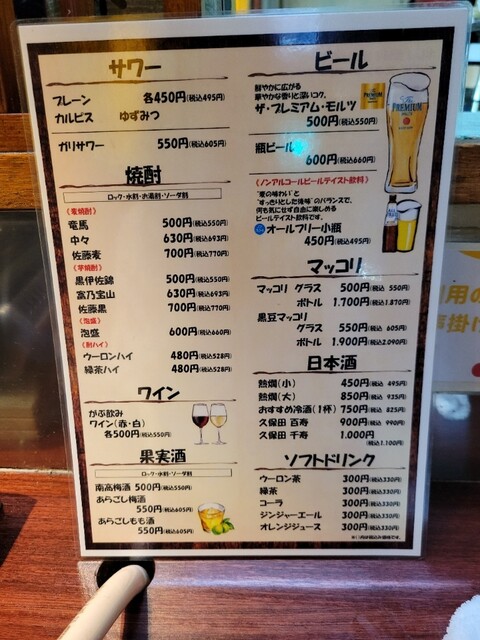 サワー
プレーン 各450円(税込495円)
カルピス ゆずみつ
ガリサワー 550円(税込605円)
焼酎
ロック・水割・お湯割・ソーダ割
(麦焼酎)
竜馬 500円(税込550円)
中々 630円(税込693円)
佐藤麦 700円(税込770円)
(芋焼酎)
黒伊佐錦 500円(税込550円)
富乃宝山 630円(税込693円)
佐藤黒 700円(税込770円)
(泡盛)
泡盛 600円(税込660円)
(酎ハイ)
ウーロンハイ 480円(税込528円)
緑茶ハイ 480円(税込528円)
ワイン
がぶ飲み
ワイン(赤・白)
各500円(税込550円)
果実酒
ロック・水割・ソーダ割
南高梅酒 500円(税込550円)
あらごし梅酒
550円(税込605円)
あらごしもも酒
550円(税込605円)
ビール
鮮やかに広がる
華やかな香りと深いコク。
ザ・プレミアム・モルツ
500円(税込550円)
PREMIUM
瓶ビール
600円(税込660円)
(ノンアルコールビールテイスト飲料)
"麦の味わい"と
"すっきりとした後味"のバランスで、
何も気にせず自由に楽しめる
ビールテイスト飲料です。
オールフリー小瓶
450円(税込495円)
マッコリ
マッコリ グラス 500円(税込 550円)
ボトル 1.700円(税込1.870円)
黒豆マッコリ
グラス 550円(税込 605円)
ボトル 1.900円(税込2.090円)
日本酒
熱燗(小) 450円(税込 495円)
熱燗(大) 850円(税込 935円)
おすすめ冷酒(1杯) 750円(税込 825円)
久保田 百寿 900円(税込 990円)
久保田 千寿 1.000円
(税込1.100円)
ソフトドリンク
ウーロン茶 300円(税込330円)
緑茶 300円(税込330円)
コーラ 300円(税込330円)
ジンジャーエール 300円(税込330円)
オレンジジュース 300円(税込330円)
※( )内は税込み価格です。
用の
声掛け